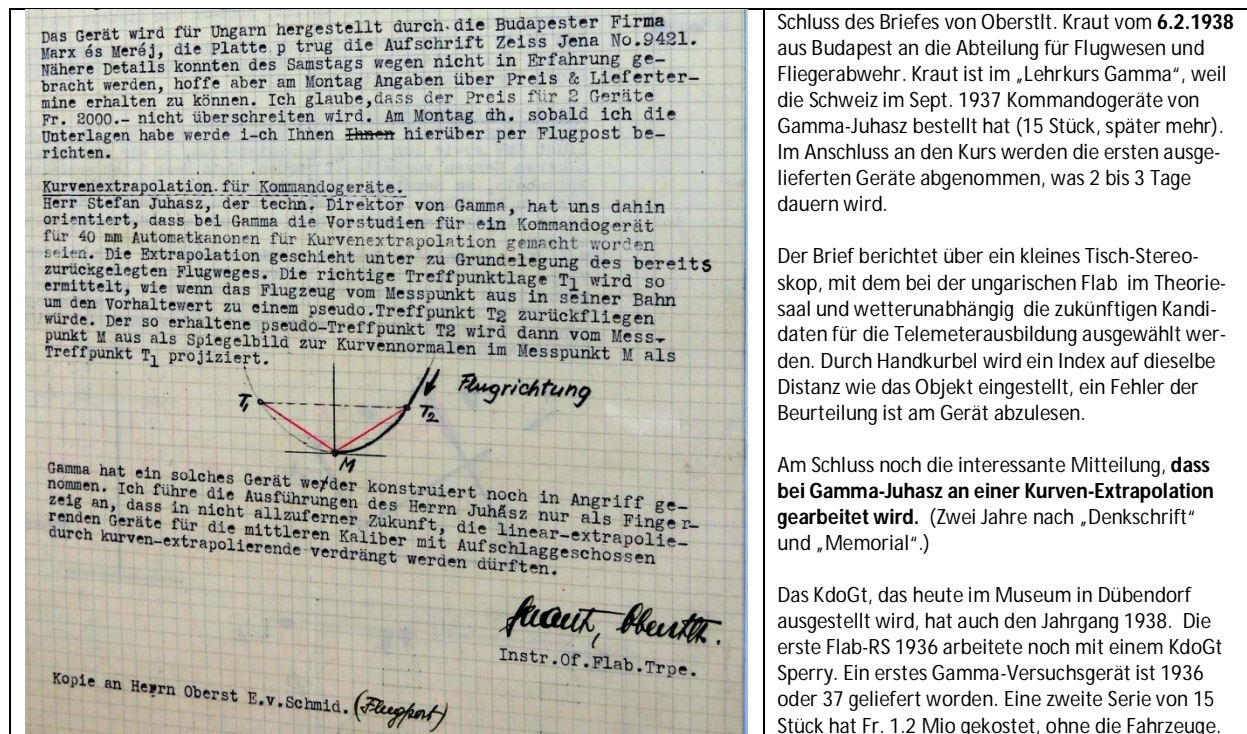 Das Gerät wird für Ungarn hergestellt durch die Budapester Firma
Marx és Meréj, die Platte p trug die Aufschrift Zeiss Jena No.9421.
Nähere Details konnten des Samstags wegen nicht in Erfahrung ge-
bracht werden, hoffe aber am Montag Angaben über Preis & Lieferter-
mine erhalten zu können. Ich glaube,dass der Preis für 2 Geräte
Fr. 2000.- nicht überschreiten wird. Am Montag dh. sobald ich die
Unterlagen habe werde i-ch Ihnen Ihnen hierüber per Flugpost be-
richten.
Kurvenextrapolation für Kommandogeräte.
Herr Stefan Juhasz, der techn. Direktor von Gamma, hat uns dahin
orientiert, dass bei Gamma die Vorstudien für ein Kommandogerät
für 40 mm Automatkanonen für Kurvenextrapolation gemacht worden
seien. Die Extrapolation geschieht unter zu Grundelegung des bereits
zurückgelegten Flugweges. Die richtige Treffpunktlage T1 wird so
ermittelt, wie wenn das Flugzeug vom Messpunkt aus in seiner Bahn
um den Vorhaltewert zu einem pseudo.Treffpunkt T2 zurückfliegen
würde. Der so erhaltene pseudo-Treffpunkt T2 wird dann vom Mess-
punkt M aus als Spiegelbild zur Kurvennormalen im Messpunkt M als
Treffpunkt T1 projiziert.
Flugrichtung
T1
T2
M
Gamma hat ein solches Gerät weder konstruiert noch in Angriff ge-
nommen. Ich führe die Ausführungen des Herrn Juhász nur als Finger-
zeig an, dass in nicht allzuferner Zukunft, die linear-extrapolie-
renden Geräte für die mittleren Kaliber mit Aufschlaggeschossen
durch kurven-extrapolierende verdrängt werden dürften.
Kraut, Oberstlt.
Instr.Of.Flab.Trpe.
Kopie an Herrn Oberst E.v.Schmid. (Flugpost)
Schluss des Briefes von Oberstlt. Kraut vom 6.2.1938
aus Budapest an die Abteilung für Flugwesen und
Fliegerabwehr. Kraut ist im „Lehrkurs Gamma“, weil
die Schweiz im Sept. 1937 Kommandogeräte von
Gamma-Juhasz bestellt hat (15 Stück, später mehr).
Im Anschluss an den Kurs werden die ersten ausge-
lieferten Geräte abgenommen, was 2 bis 3 Tage
dauern wird.
Der Brief berichtet über ein kleines Tisch-Stereo-
skop, mit dem bei der ungarischen Flab im Theorie-
saal und wetterunabhängig die zukünftigen Kandi-
daten für die Telemeterausbildung ausgewählt wer-
den. Durch Handkurbel wird ein Index auf dieselbe
Distanz wie das Objekt eingestellt, ein Fehler der
Beurteilung ist am Gerät abzulesen.
Am Schluss noch die interessante Mitteilung, dass
bei Gamma-Juhasz an einer Kurven-Extrapolation
gearbeitet wird. (Zwei Jahre nach „Denkschrift“
und „Memorial“.)
Das KdoGt, das heute im Museum in Dübendorf
ausgestellt wird, hat auch den Jahrgang 1938. Die
erste Flab-RS 1936 arbeitete noch mit einem KdoGt
Sperry. Ein erstes Gamma-Versuchsgerät ist 1936
oder 37 geliefert worden. Eine zweite Serie von 15
Stück hat Fr. 1.2 Mio gekostet, ohne die Fahrzeuge.